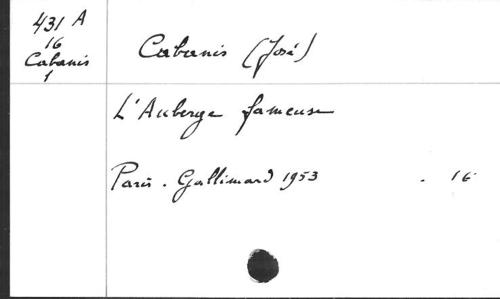 431 A
16
Cabanis
1
Cabanis (José)
L'Auberge fameuse
Paris. Gallimard 1953 . 16